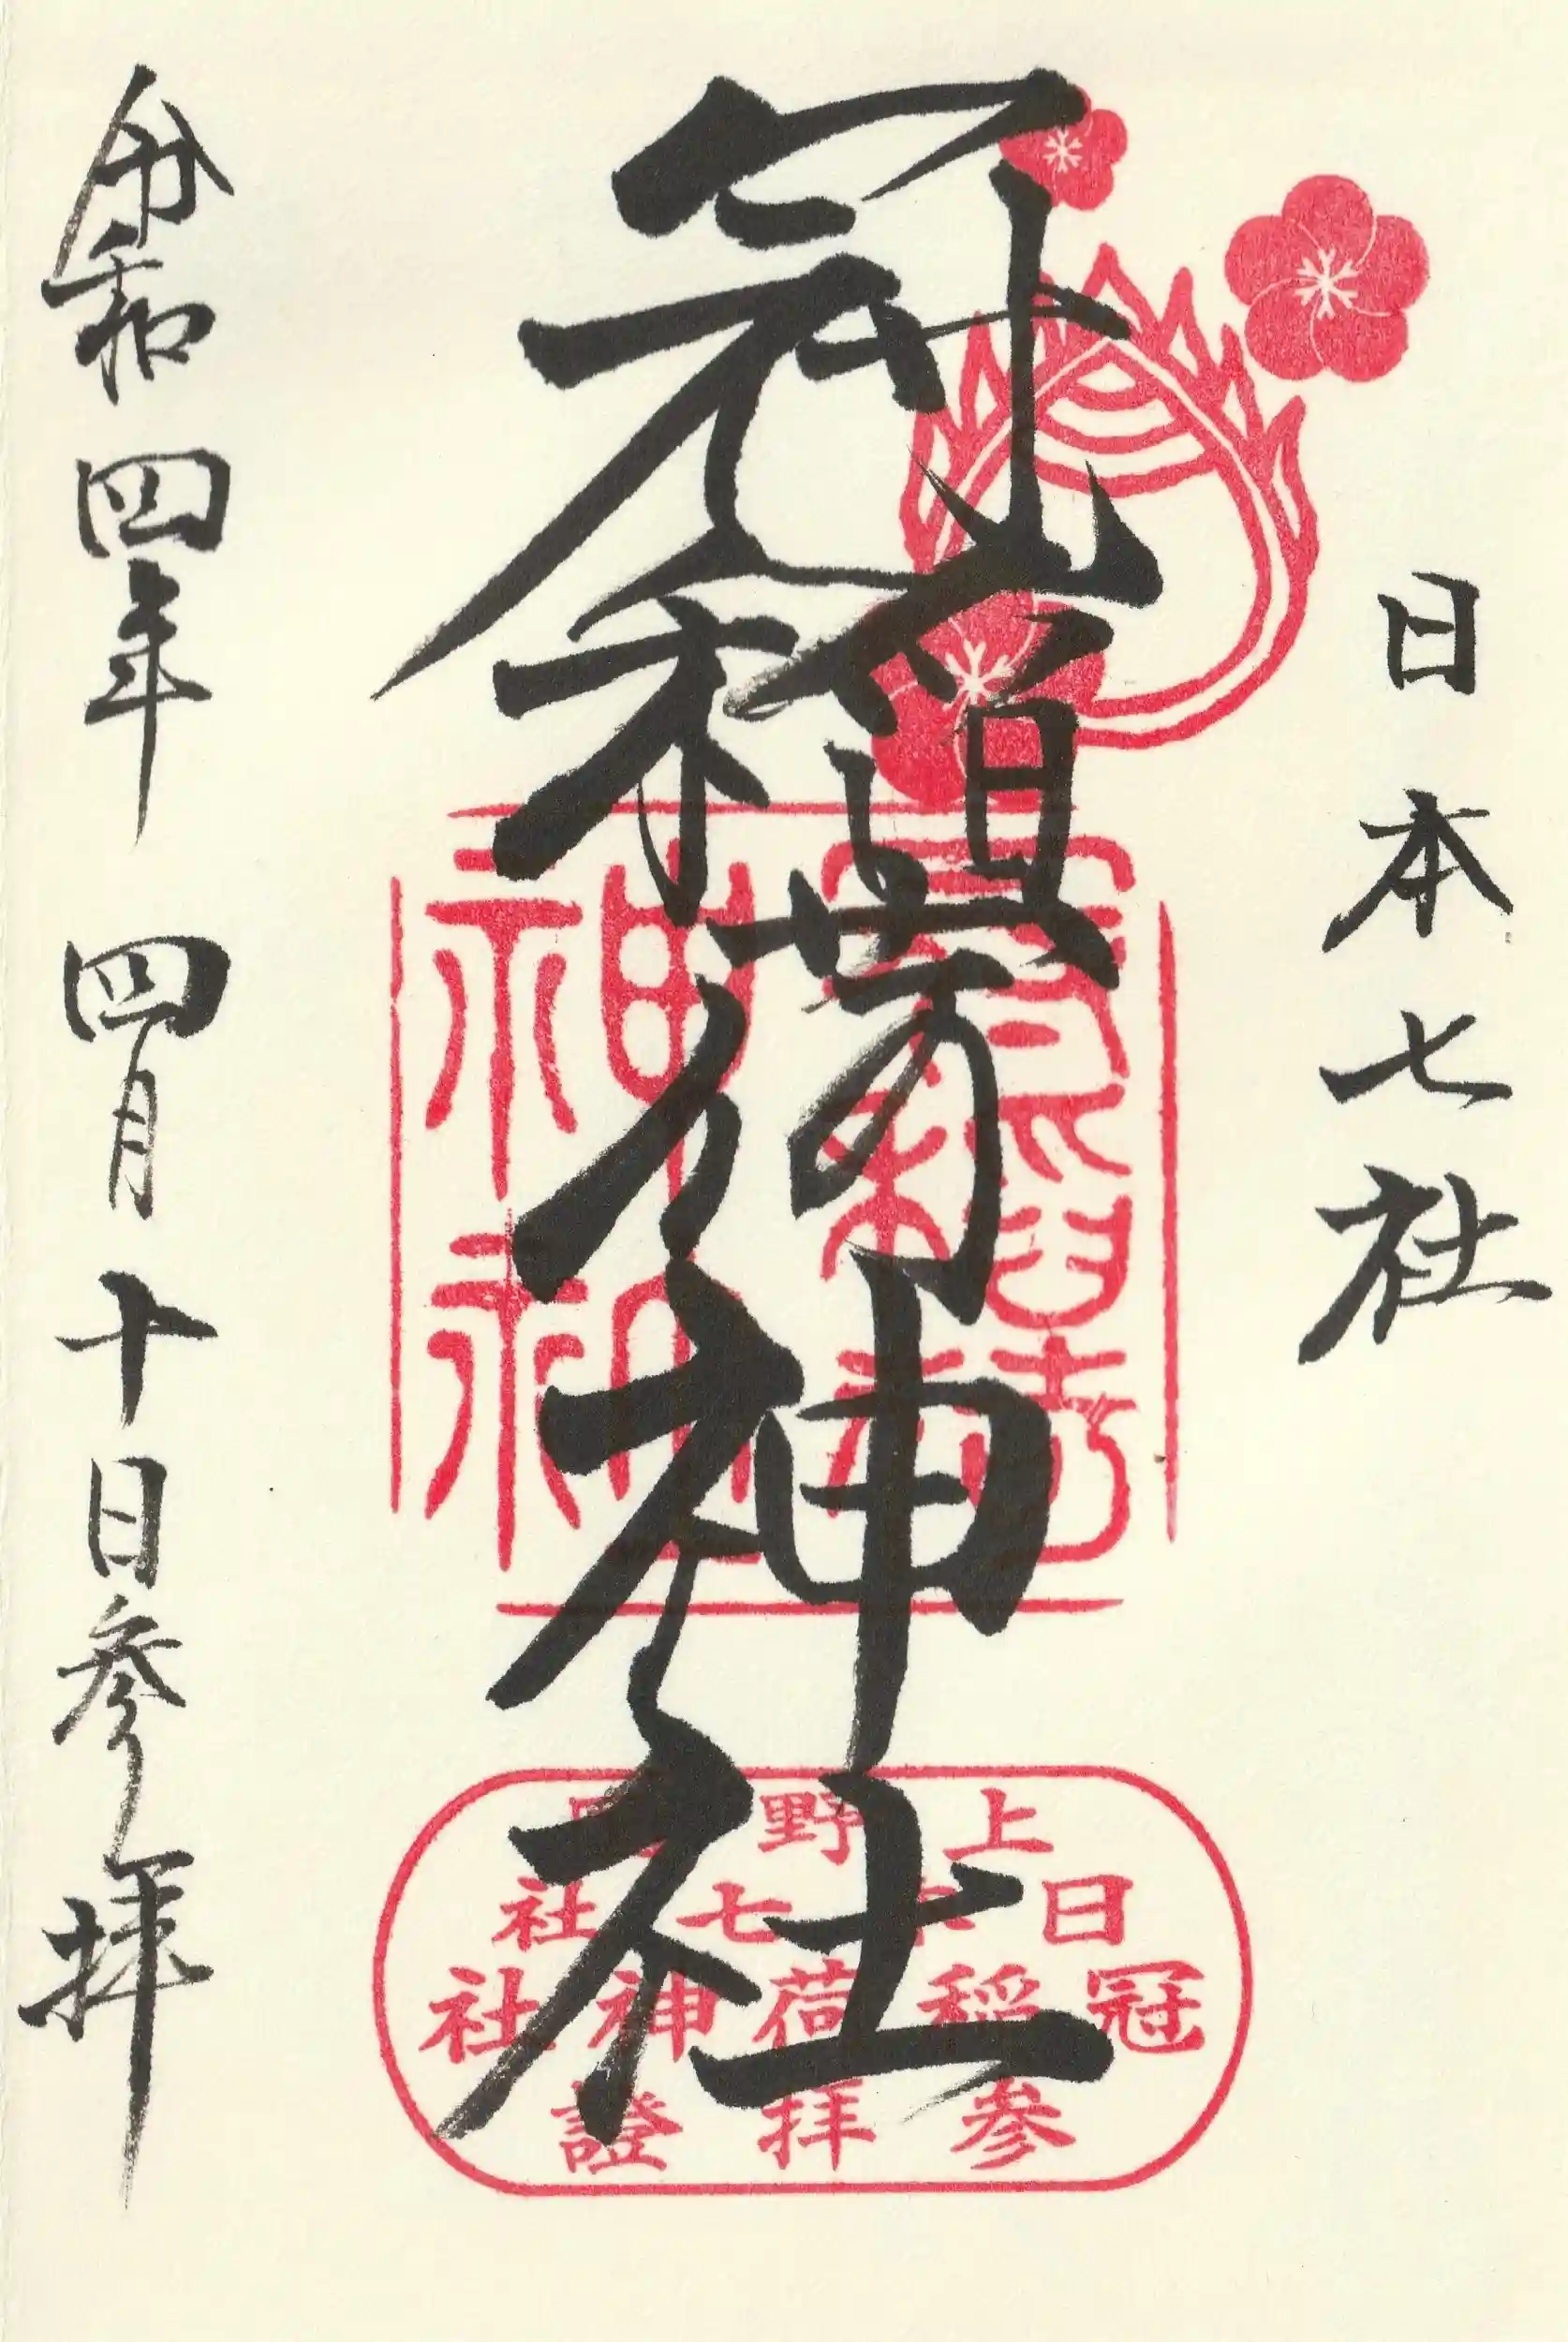 日本七社
冠稲荷神社
令和四年 四月十日参拝
上野國
日本七社
冠稲荷神社
参拝證